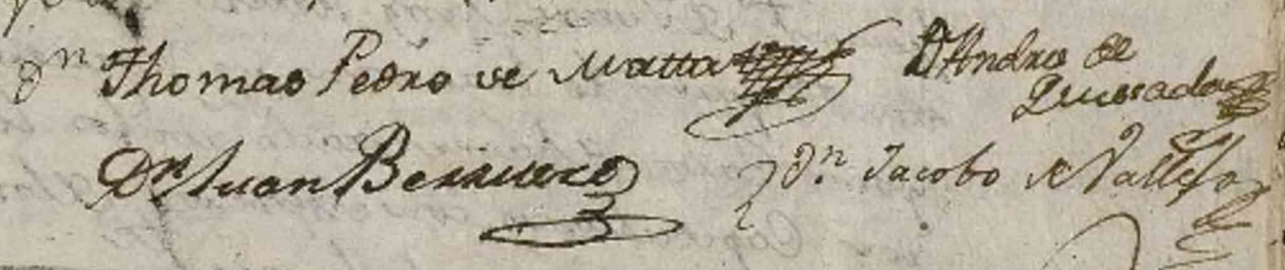 Dn Thomas Pedro de Matta
D Andres de
Quesada
Dn Juan Berruezo
Dn Jacobo de Vallejo